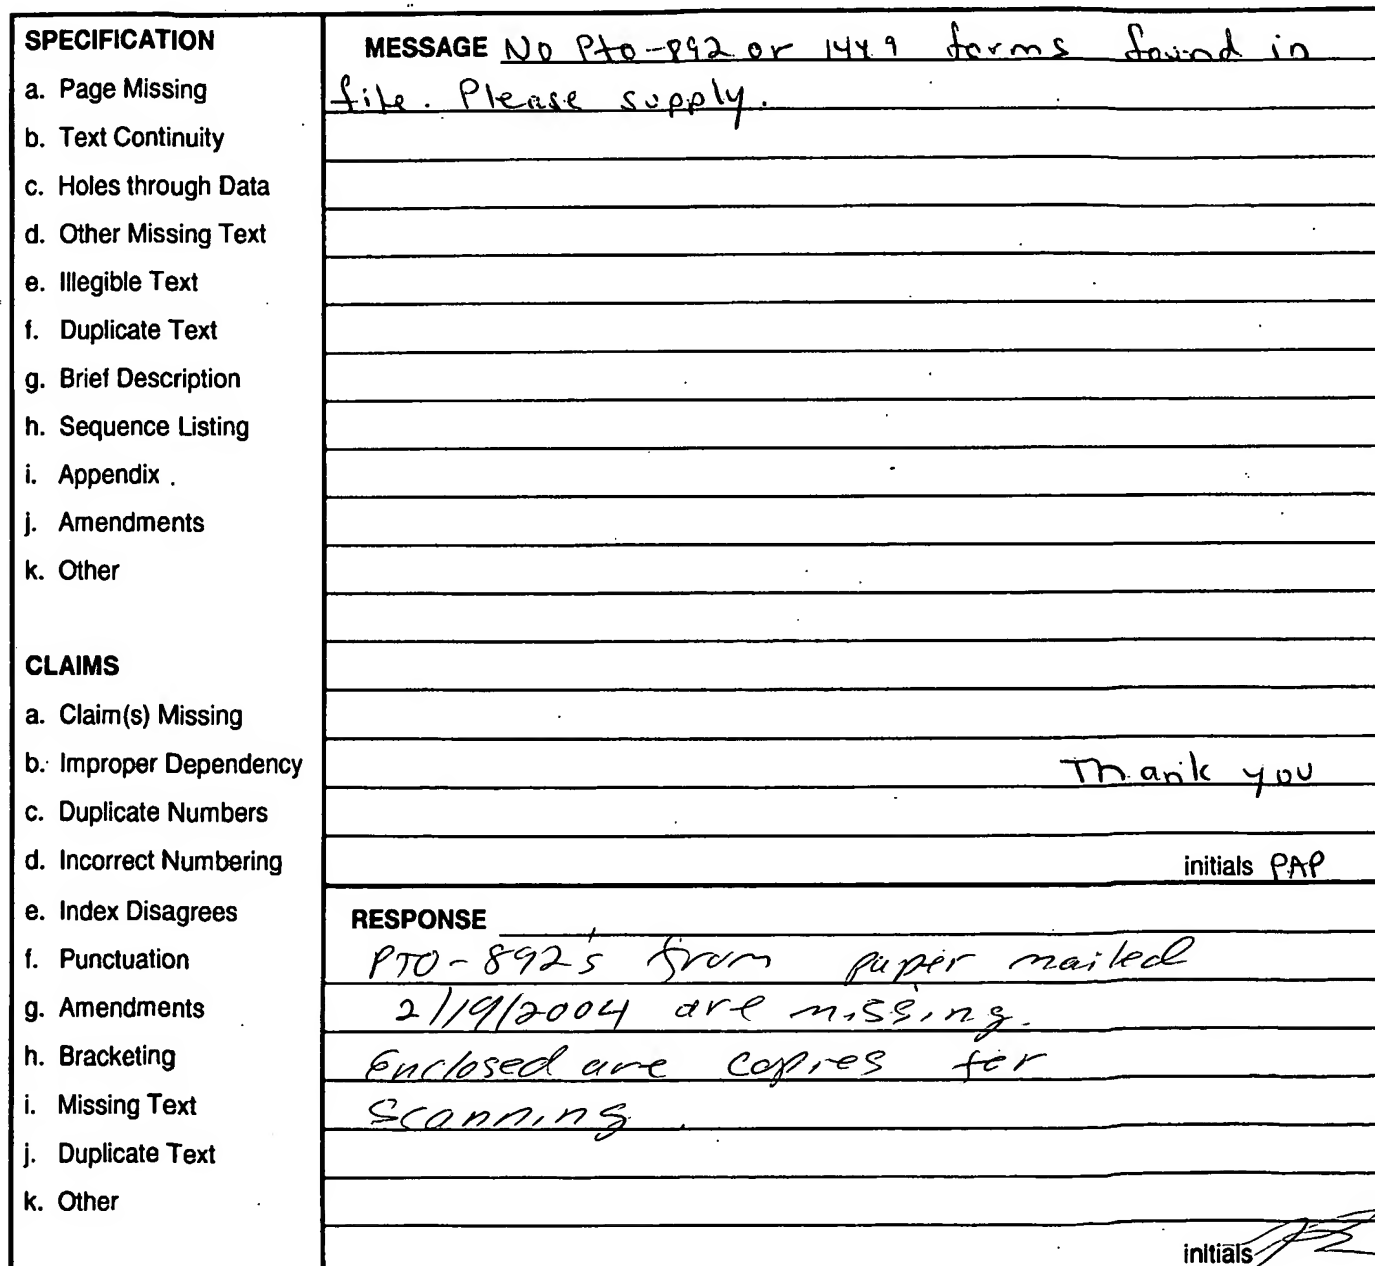 SPECIFICATION
a. Page Missing
b. Text Continuity
c. Holes through Data
d. Other Missing Text
e. Illegible Text
f. Duplicate Text
g. Brief Description
h. Sequence Listing
i. Appendix
j. Amendments
k. Other
CLAIMS
a. Claim(s) Missing
b. Improper Dependency
c. Duplicate Numbers
d. Incorrect Numbering
e. Index Disagrees
f. Punctuation
g. Amendments
h. Bracketing
i. Missing Text
j. Duplicate Text
k. Other
MESSAGE No Pto-892 or 1449 forms found in
file. Please supply.
Thank you
initials PAP
RESPONSE
PTO-892's from paper mailed
2/19/2004 are missing.
Enclosed are copies for
scanning.
initials